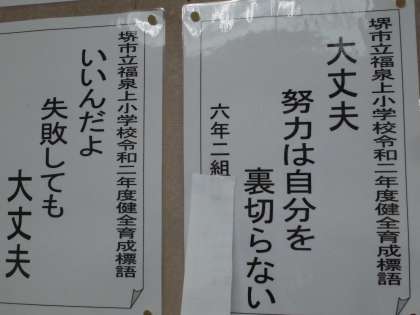 堺市立福泉上小学校令和二年度健全育成標語
大丈夫
努力は自分を
裏切らない
六年二組
堺市立福泉上小学校令和二年度健全育成標語
いいんだよ
失敗しても
大丈夫